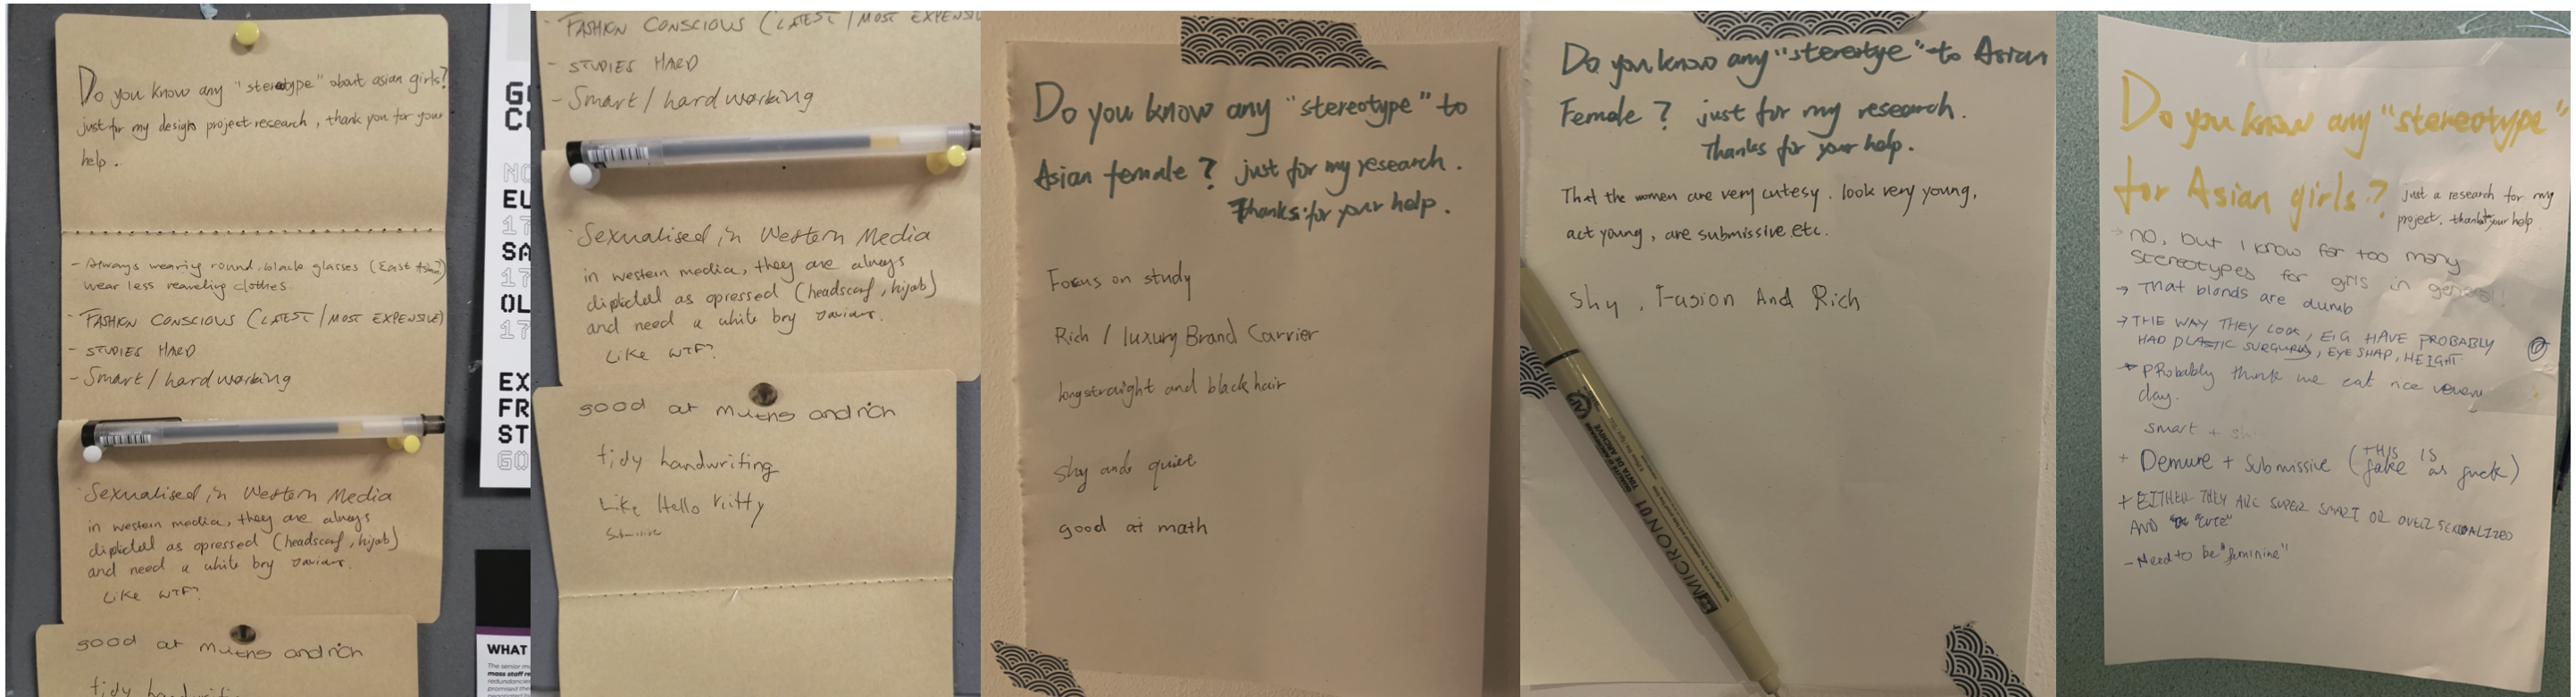 Do you know any "stereotype" about asian girls?
just for my design project research, thank you for your
help.
- Always wearing round, black glasses (East Asian)
wear less revealing clothes
- FASHION CONSCIOUS (LATEST/MOST EXPENSIVE)
- STUDIES HARD
- Smart/hard working
Sexualised in Western Media
in western media, they are always
dipicted as opressed (headscarf, hijab)
and need a white boy saviour.
Like WTF?
good at maths and rich
tidy handwriting
WHAT
EX
FR
ST
GO
SA
OL
17
EU
- FASHION CONSCIOUS (LATEST/MOST EXPENSIV
- STUDIES HARD
- Smart/hard working
Sexualised in Western Media
in western media, they are always
dipicted as opressed (headscarf, hijab)
and need a white boy saviour.
Like WTF?
good at maths and rich
tidy handwriting
Like Hello Kitty
Submissive
Do you know any "stereotype" to
Asian female? just for my research.
Thanks for your help.
Focus on study
Rich / luxury Brand Carrier
long straight and black hair
shy and quiet
good at math
Do you know any "steretye" to Asian
Female? just for my research.
Thanks for your help.
That the women are very cutesy. look very young,
act young, are submissive etc.
shy, Fusion And Rich
MICRON 01
Do you know any "stereotype"
for Asian girls? just a research for my
project. thanks your help
→ NO, but I know far too many
stereotypes for girls in general!
→ That blonds are dumb
→ THE WAY THEY LOOK, E.G HAVE PROBABLY
HAD PLASTIC SURGURY, EYE SHAP, HEIGHT
PRobably think we eat rice
day.
smart +
+ Demure + Submissive (THIS IS
fake as fuck)
+ EITHER THEY ARE SUPER SMART OR OVER SEXUALIZED
AND "CUTE"
- Need to be "feminine"